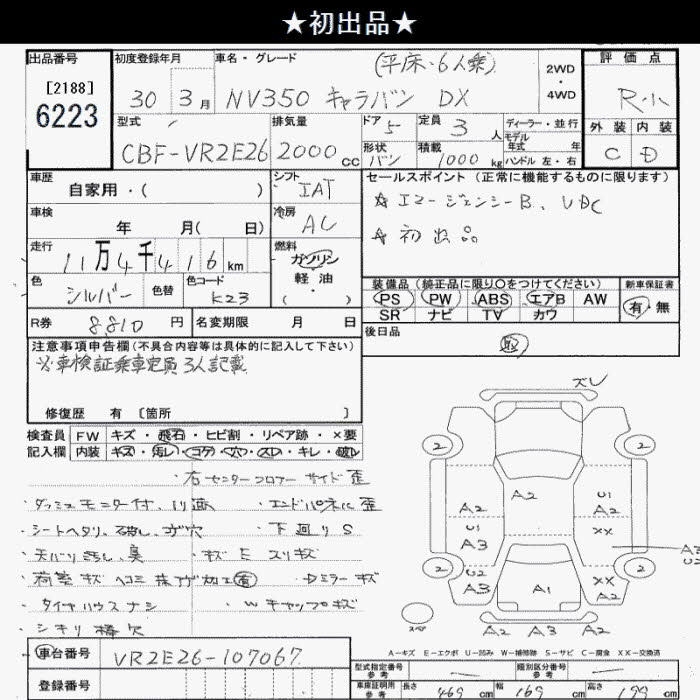 ★初出品★
出品番号
[2188]
6223
初度登録年月
30年 3月
車名・グレード
(平床・6人乗)
NV350 キャラバン DX
2WD
・
4WD
評価点
R-1
外装 内装
C D
型式
CBF-VR2E26
排気量
2000cc
ドア 5
形状 バン
定員 3人
積載 1000kg
ディーラー・並行
モデル年式 年
ハンドル 左・右
車歴
自家用・( )
シフト
IAT
セールスポイント (正常に機能するものに限ります)
☆エマージェンシーB、VDC
☆初出品
車検
年 月( 日)
冷房
AC
走行
11万4千416km
燃料
ガソリン
軽油
・( )
色
シルバー
色替
色コード
K23
装備品 (純正品に限り○をつけてください)
PS PW ABS エアB AW
SR ナビ TV カワ
新車保証書
有・無
R券
8,810円
名変期限 月 日
後日品
取
注意事項申告欄(不具合内容等は具体的に記入して下さい)
※車検証乗車定員3人記載
修復歴 有 [箇所 ]
検査員記入欄
FW キズ・飛石・ヒビ割・リペア跡・×要
内装 キズ・汚レ・コゲ・穴・スレ・キレ・破レ
・右センターフロアーサイド歪
・ダッシュモニター付、リ面
・エンドパネルに歪
・シートヘタリ、破レ、コゲ穴
・下廻りS
・天バリ汚レ、臭
・キズ E スリキズ
・荷室キズヘコミ抹ゲ加工有
・Dミラーキズ
・タイヤハウスナシ
・Wキャップキズ
・シキリ棒欠
ズレ
2 2
A2 A2 U1
A2
U1 XX
A3
U2 XX
A3 A1 A2
2 2
スペア
A2 A3 A2
A-キズ E-エクボ U-凹み W-補修跡 S-サビ C-腐食 XX-交換済
車台番号
VR2E26-107067
登録番号
型式指定番号
参考
類別区分番号
参考
車庫証明用
参考
長さ 469cm
幅 169cm
高さ 199cm